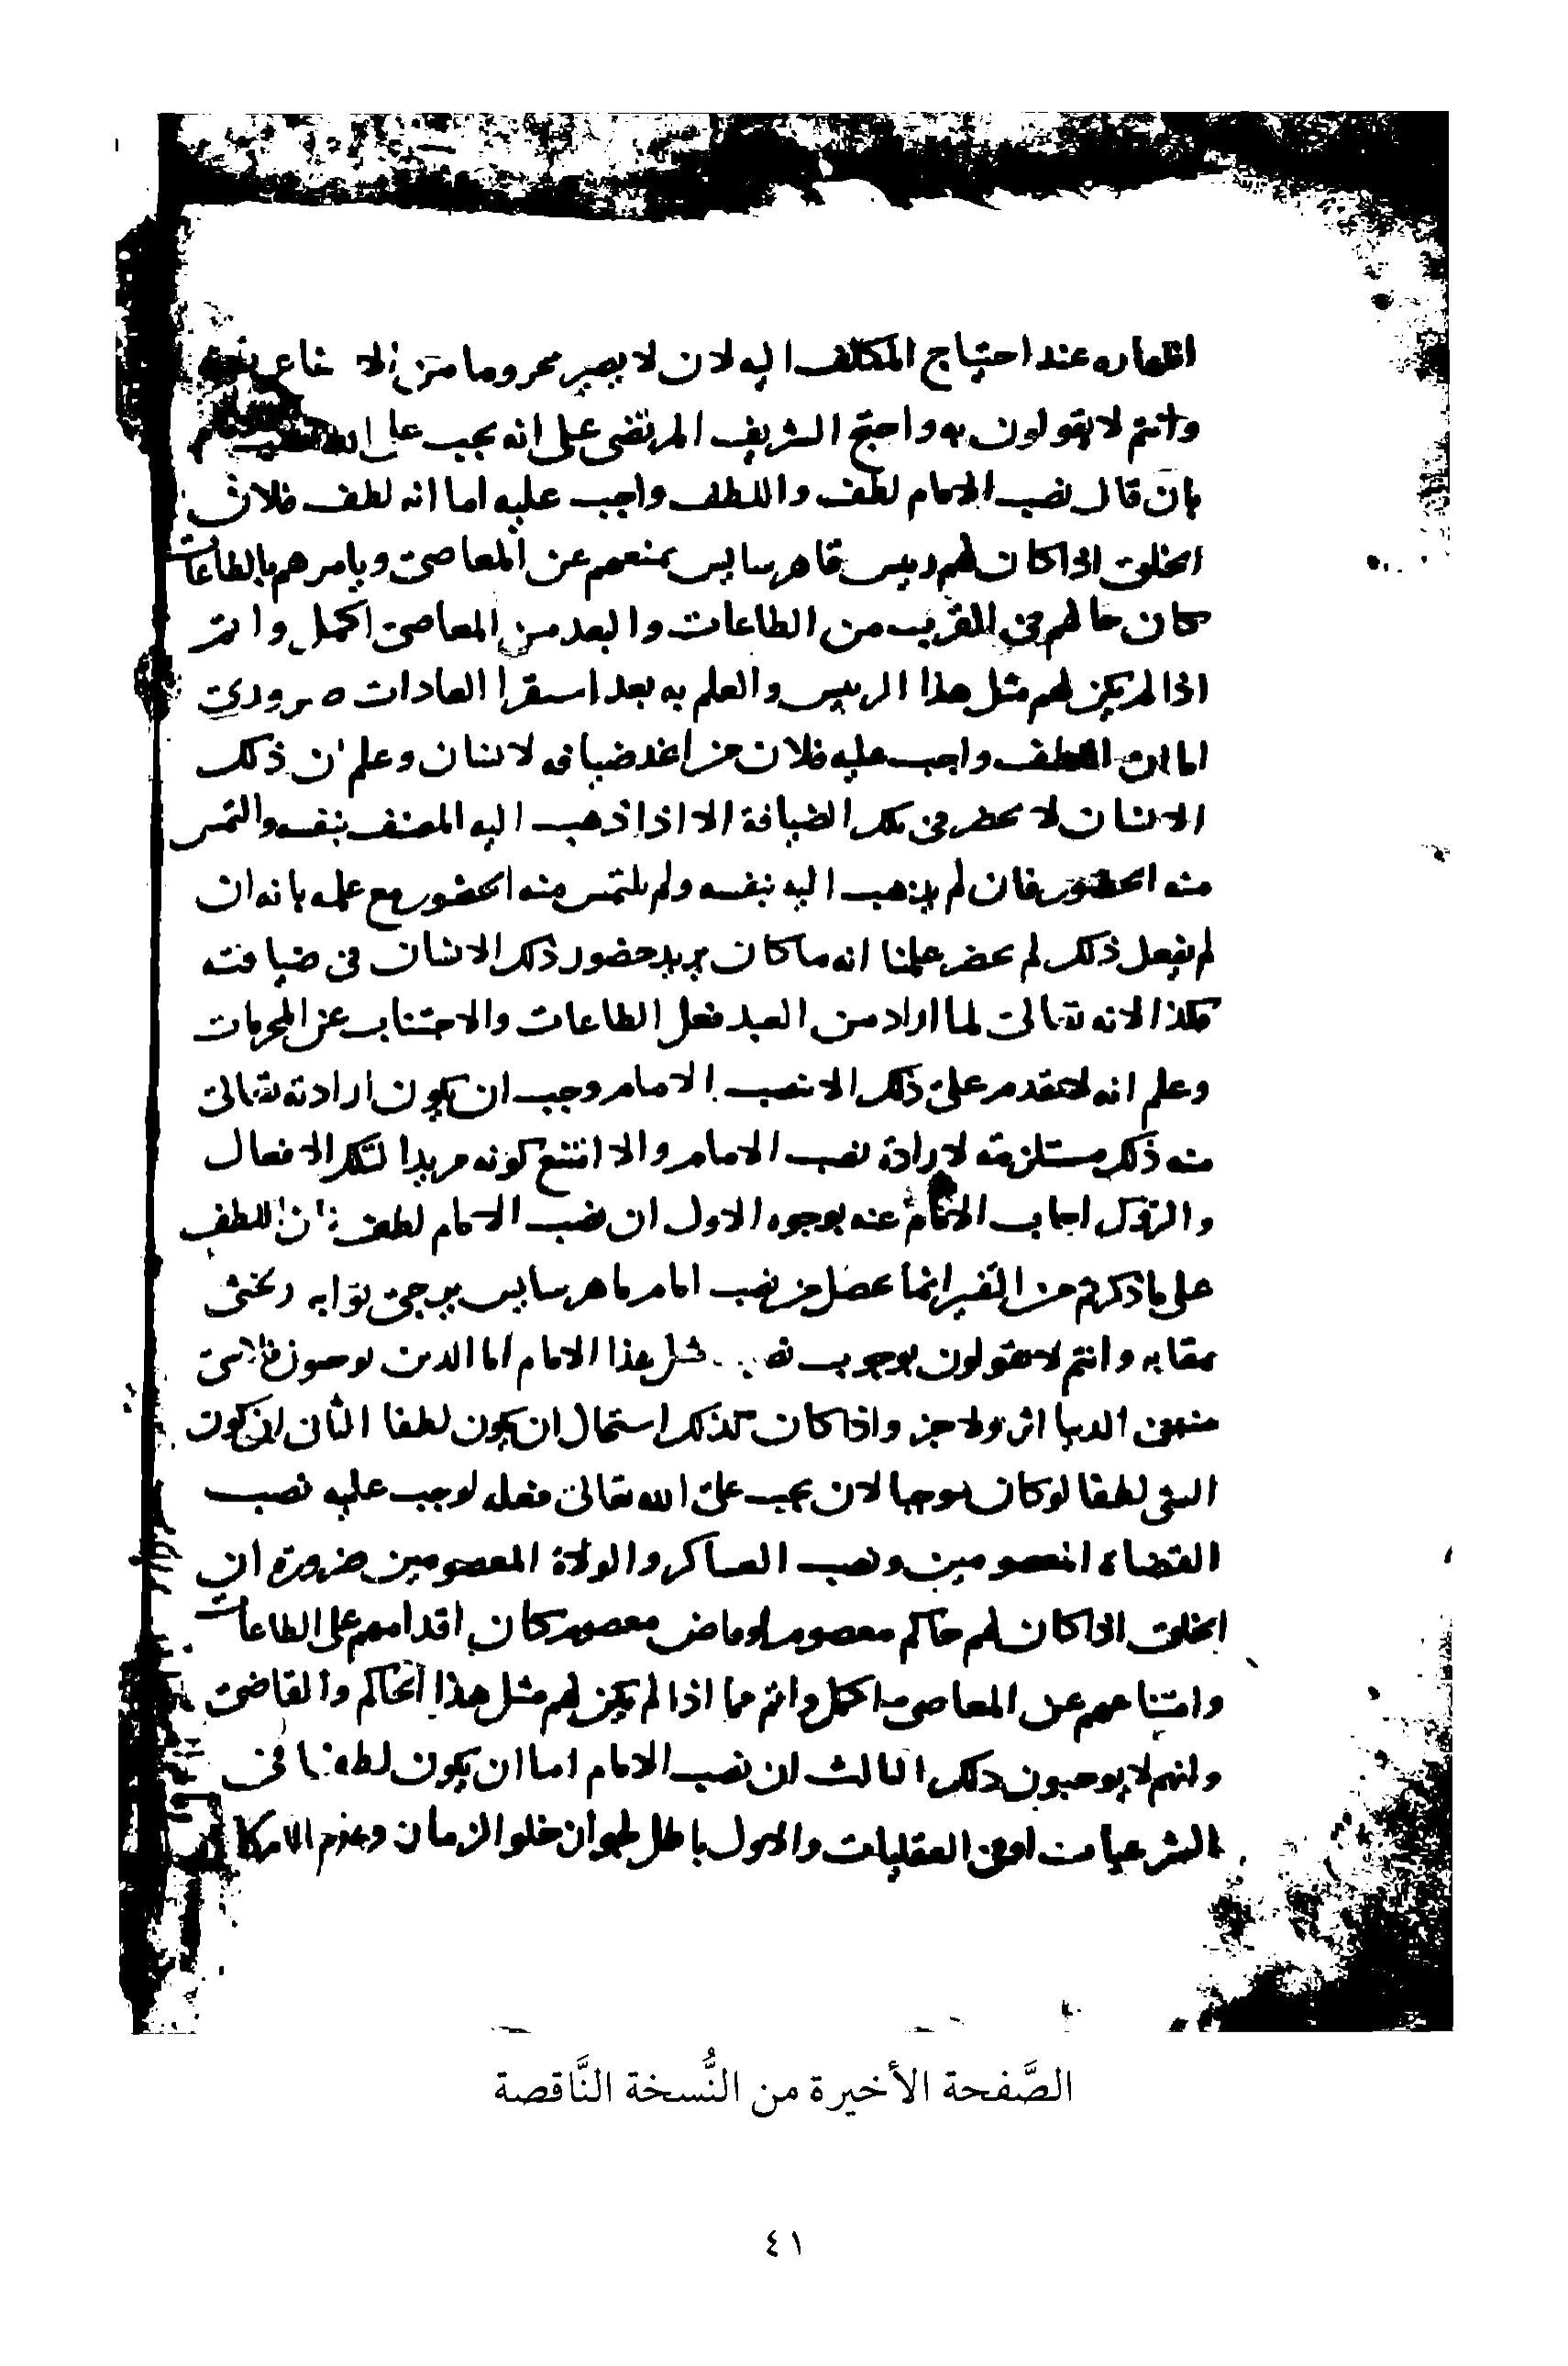 اظهاره عند احتياج المكلف اليه لان لا يصير محروما من الانتفاع
وانتم لا تقولون به واحتج الشريف المرتضى على انه يجب على الله
بان قال نصب الامام لطف واللطف واجب عليه اما انه لطف فلان
الخلق اذا كان لهم رييس قاهر سايس يمنعهم عن المعاصي ويامرهم بالطاعات
كان حالهم في القرب من الطاعات والبعد من المعاصي اكمل واتم
اذا لم يكن لهم مثل هذا الرييس والعلم به بعد استقرا العادات ضروري
اما ان اللطف واجب عليه فلان من اتخذ ضيافه لانسان وعلم ان ذلك
الانسان لا يحضر في تلك الضيافة الا اذا ذهب اليه المضيف بنفسه والتمس
منه الحضور فان لم يذهب اليه بنفسه ولم يلتمس منه الحضور مع علمه بانه ان
لم يفعل ذلك لم يحضر علمنا انه ما كان يريد حضور ذلك الانسان في ضيافته
هكذا الانه تعالى لما اراد من العبد فعل الطاعات والاجتناب عن المحرمات
وعلم انه لا يقدم على ذلك الا بنصب الامام وجب ان يكون ارادته تعالى
منه ذلك مستلزمة لارادة نصب الامام والا امتنع كونه مريدا لتلك الافعال
والرد اجاب الامام عنه بوجوه الاول ان نصب الامام لطف فان اللطف
على ما ذكرتم من التفسير انما يحصل من نصب امام قاهر سايس يرجى ثوابه ويخشى
عقابه وانتم لا تقولون بوجوب نصب مثل هذا الامام اما الذين توجبون
منهم في الدنيا اثر ولا خبر واذا كان كذلك استحال ان يكون لطفا الثاني ان كون
الشي لطفا لو كان موجبا لان يجب على الله تعالى فعله لوجب عليه نصب
القضاء المعصومين ونصب العساكر والولاة المعصومين ضرورة ان
الخلق اذا كان لهم حاكم معصوم او قاض معصوم كان اقدامهم على الطاعات
وامتناعهم عن المعاصي اكمل واتم مما اذا لم يكن لهم مثل هذا الحاكم والقاضي
وانهم لا يوجبون ذلك الثالث ان نصب الامام اما ان يكون لطفا في
الشرعيات او في العقليات والاول باطل لجواز خلو الزمان وعدم
الصَّفحة الأخيرة من النُّسخة النَّاقصة
٤١